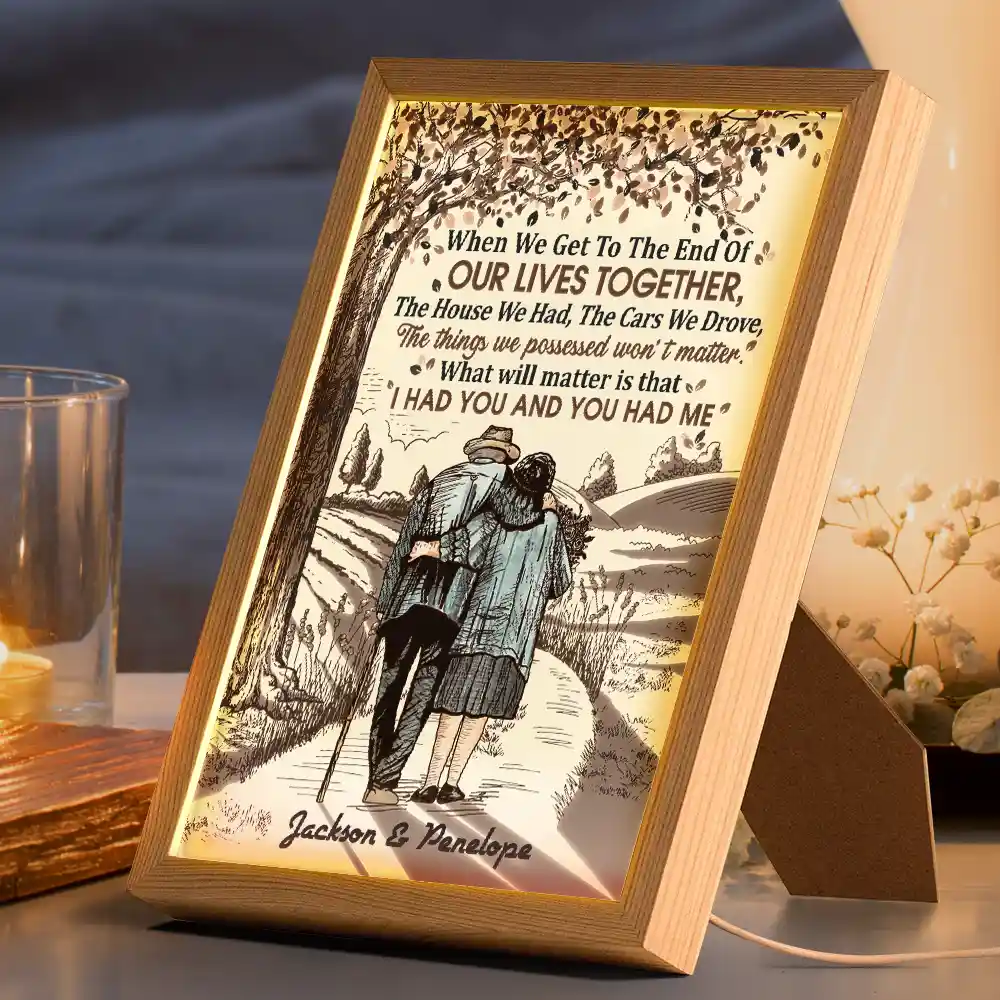 When We Get To The End Of
OUR LIVES TOGETHER,
The House We Had, The Cars We Drove,
The things we possessed won't matter.
What will matter is that
I HAD YOU AND YOU HAD ME
Jackson & Penelope